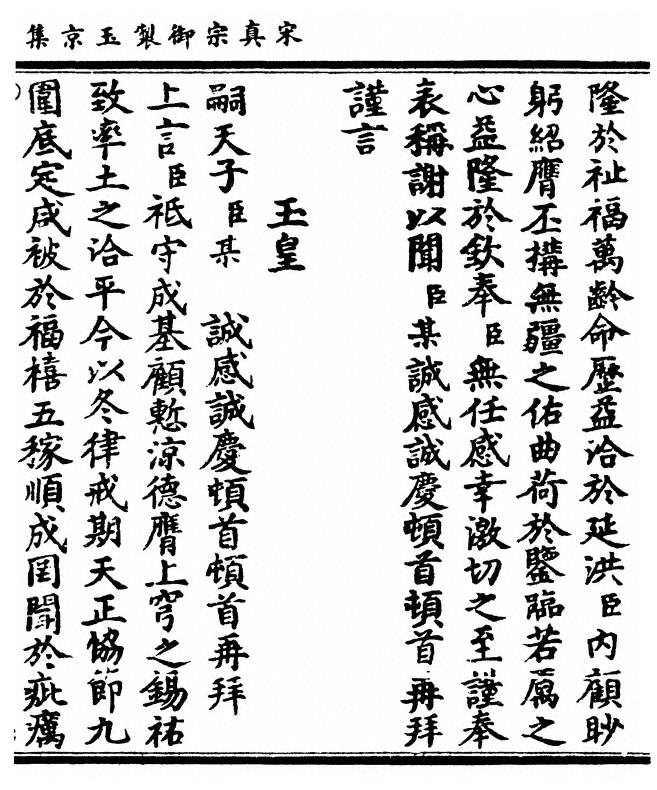 宋真宗御製玉京集
隆於祉福萬齡命歷益洽於延洪臣內顧眇
躬紹膺丕搆無疆之佑曲荷於鑒臨若厲之
心益隆於欽奉臣無任感幸激切之至謹奉
表稱謝以聞臣某誠感誠慶頓首頓首再拜
謹言
玉皇
嗣天子臣某 誠感誠慶頓首頓首再拜
上言臣祗守成基顧慙涼德膺上穹之錫祐
致率土之洽平今以冬律戒期天正協節九
圍底定咸被於福禧五稼順成罔聞於疵癘